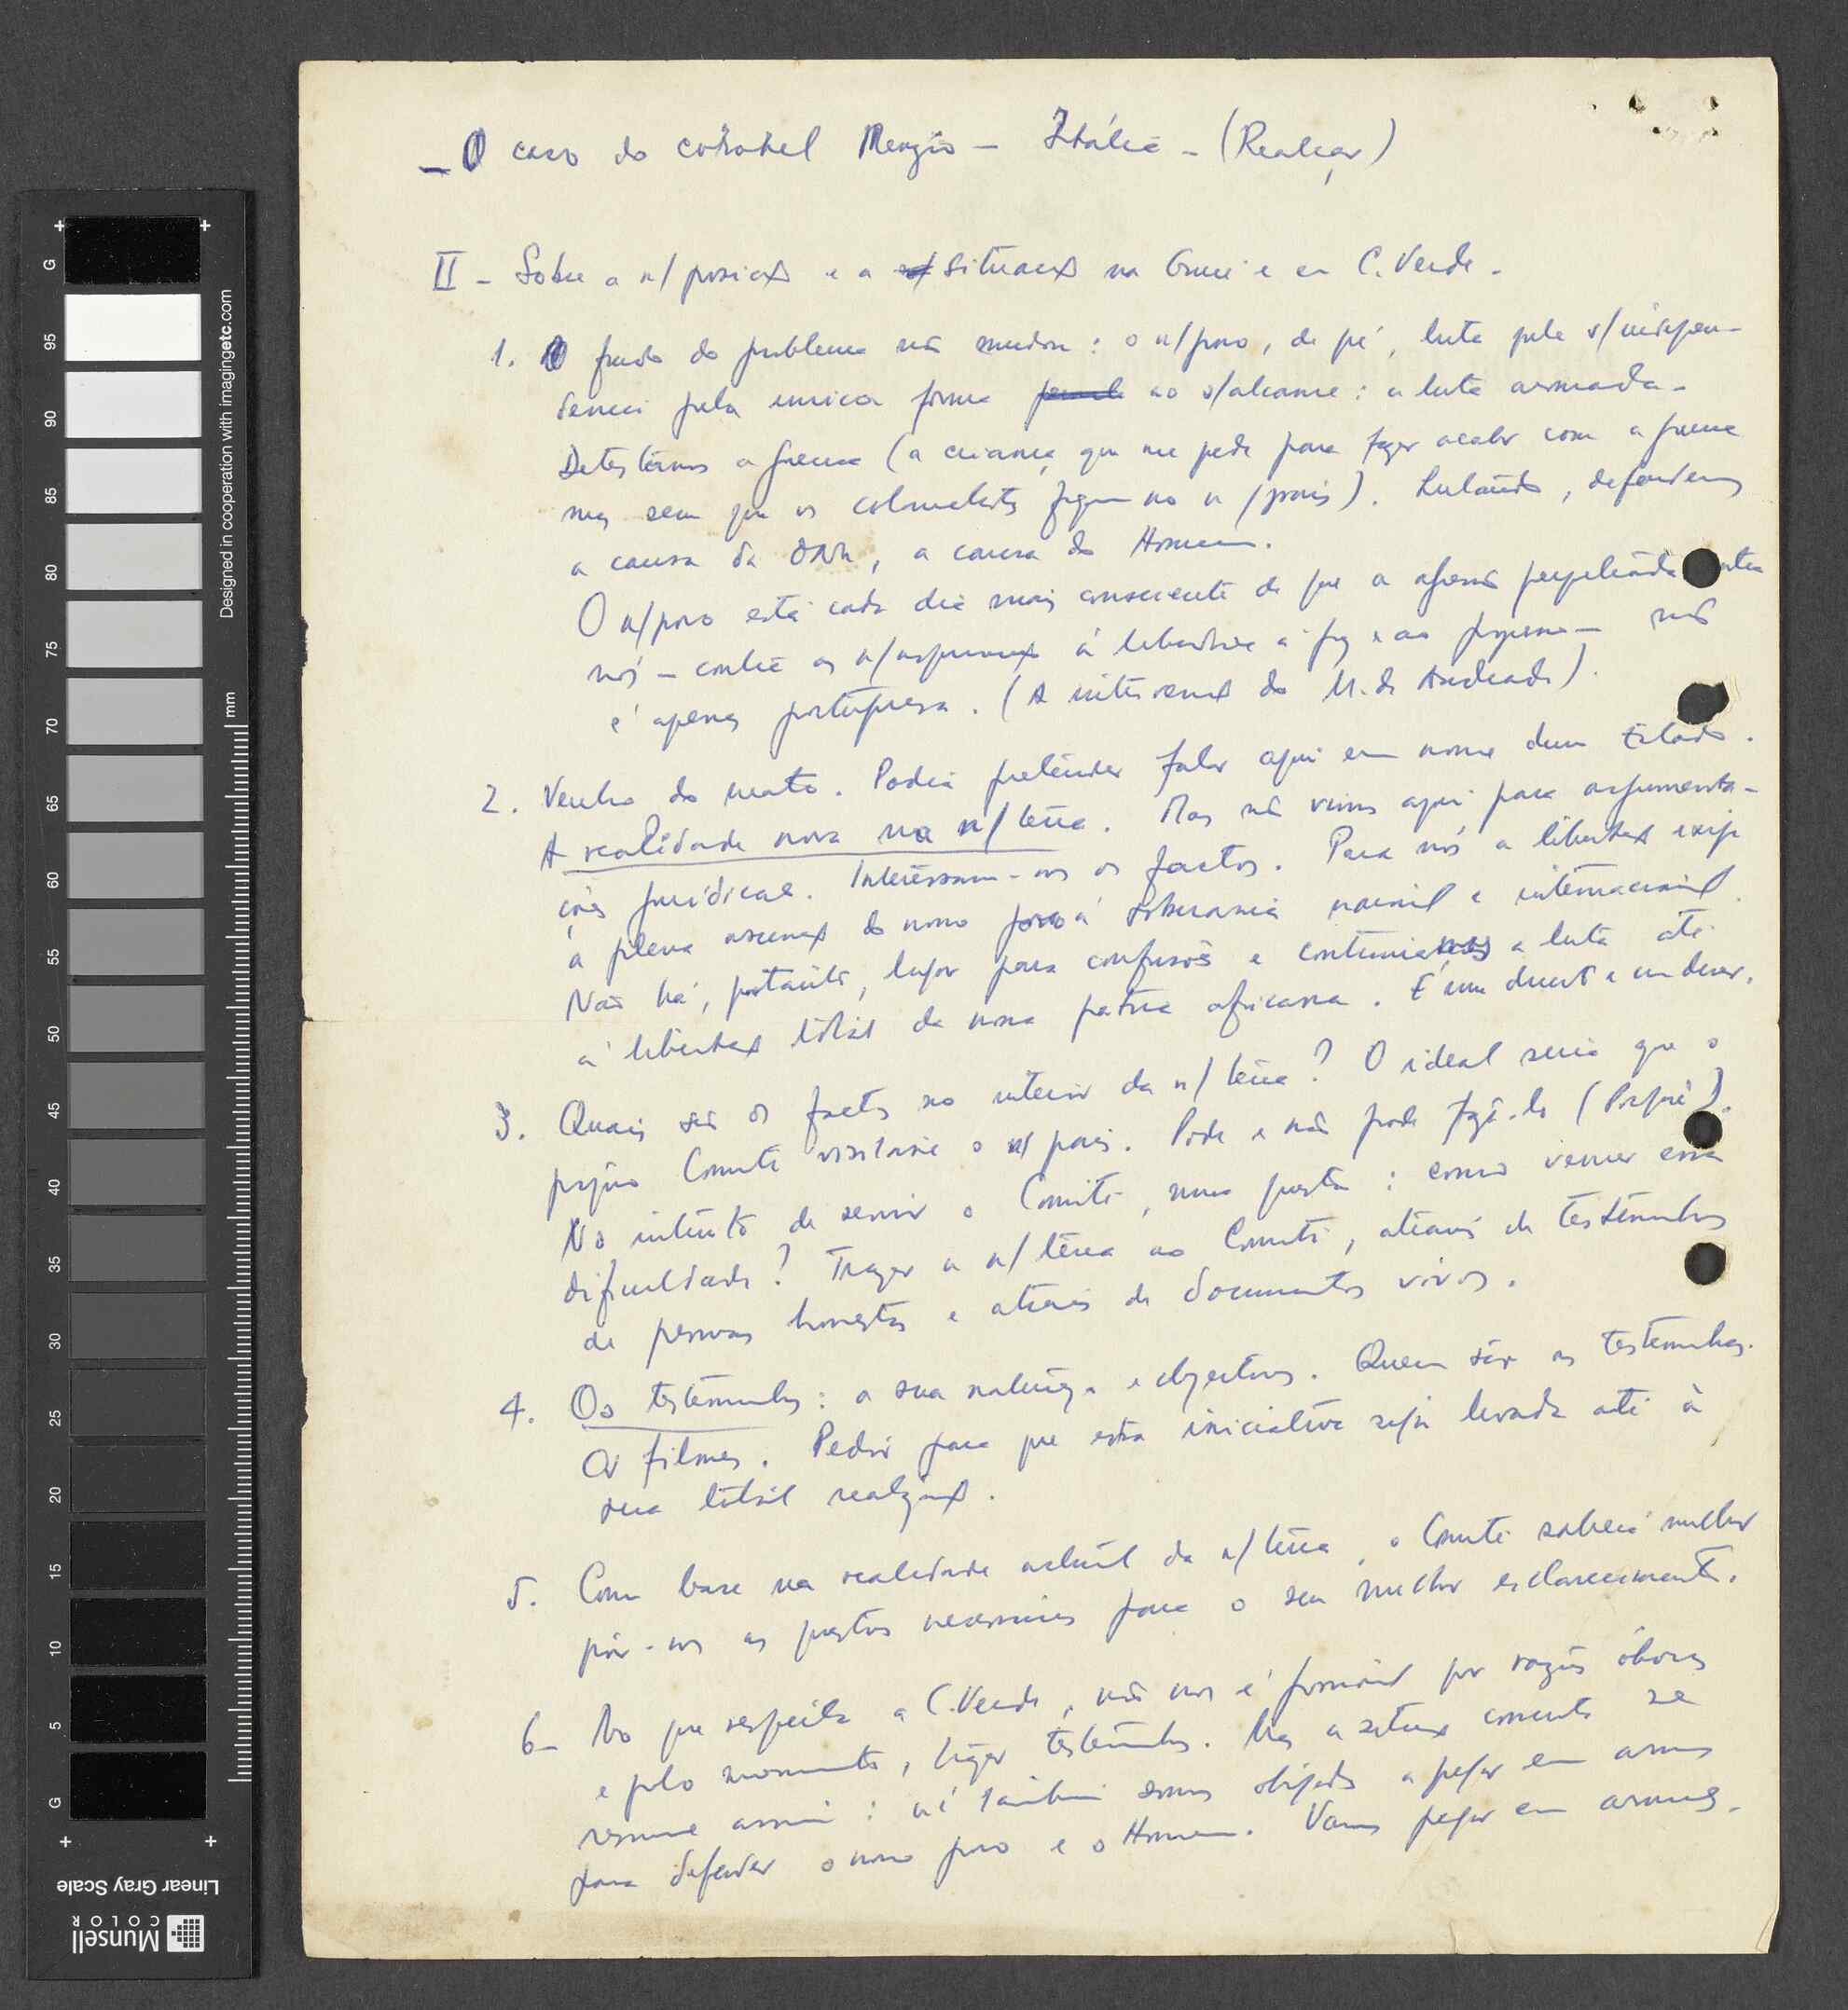 - O caso do coronel - Itália - (Realçar)
II - Sobre a n/ posição e a situação na Guiné e em C. Verde.
1. O fundo do problema não mudou: o n/povo, de pé, luta pela s/indepen-
dencia pela unica forma ao s/alcance: a luta armada.
Detestamos a guerra (a criança que me pede para fazer acabar com a guerra
mas sem que os colonialistas fiquem no n/país). Lutando, defendemos
a causa da ONU, a causa do Homem.
O n/povo está cada dia mais consciente de que a agressão perpetrada
nós - contra as n/aspirações à liberdade à paz e ao progresso - não
é apenas portuguesa. (A intervenção do M. de Andrade).
2. Venho do mato. Podia pretender falar aqui em nome dum Estado.
A realidade nova na n/terra. Mas não vimos aqui para argumenta-
ções jurídicas. Interessam-nos os factos. Para nós a libertação exige
a plena ascensão do nosso povo à soberania nacional e internacional.
Não há, portanto, lugar para confusões e continuamos a luta até
à libertação total da nossa pátria africana. É um direito e um dever.
3. Quais são os factos no interior da n/terra? O ideal seria que o
próprio Comité visitasse o n/ país. Pode e não pode fazê-lo (Porquê?).
No intuito de servir o Comité, uma questão: como vencer essa
dificuldade? Trazer a n/terra ao Comité, através de testemunhos
de pessoas honestas e através de documentos vivos.
4. Os testemunhos: a sua natureza e objectivos. Quem são as testemunhas.
Os filmes. Pedir para que esta iniciativa seja levada até à
sua total realização.
5. Com base na realidade actual da n/terra, o Comité saberá melhor
pôr-nos as questões necessárias para o seu melhor esclarecimento.
6- No que respeita a C. Verde, não nos é possível por razões óbvias
e pelo momento, trazer testemunhos. Mas a situação concreta se
resume assim: aí também somos obrigados a pegar em armas
para defender o nosso povo e o Homem. Vamos pegar em armas.
G
95
90
85
80
75
70
65
60
55
50
45
40
35
30
25
20
15
10
5
G
mm
Designed in cooperation with imagingetc.com
Linear Gray Scale
Munsell
COLOR